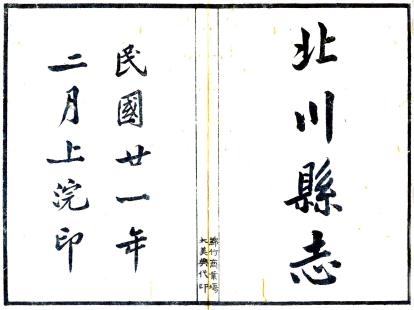 北川縣志
民國廿一年
二月上浣印
綿竹商業場
大美興代印